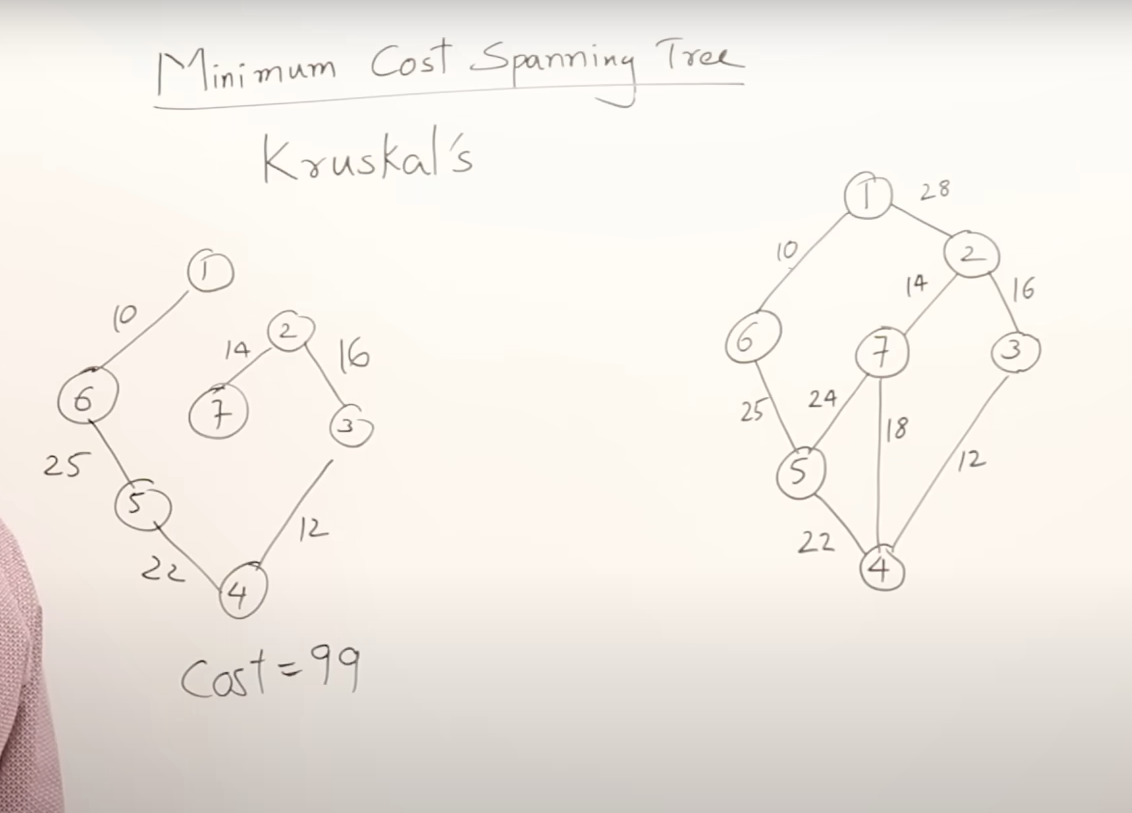 Minimum Cost Spanning Tree
Kruskal's
1
10
14
2
16
6
7
3
25
5
12
22
4
Cost = 99
1
28
10
2
14
16
6
7
3
25
24
18
5
12
22
4